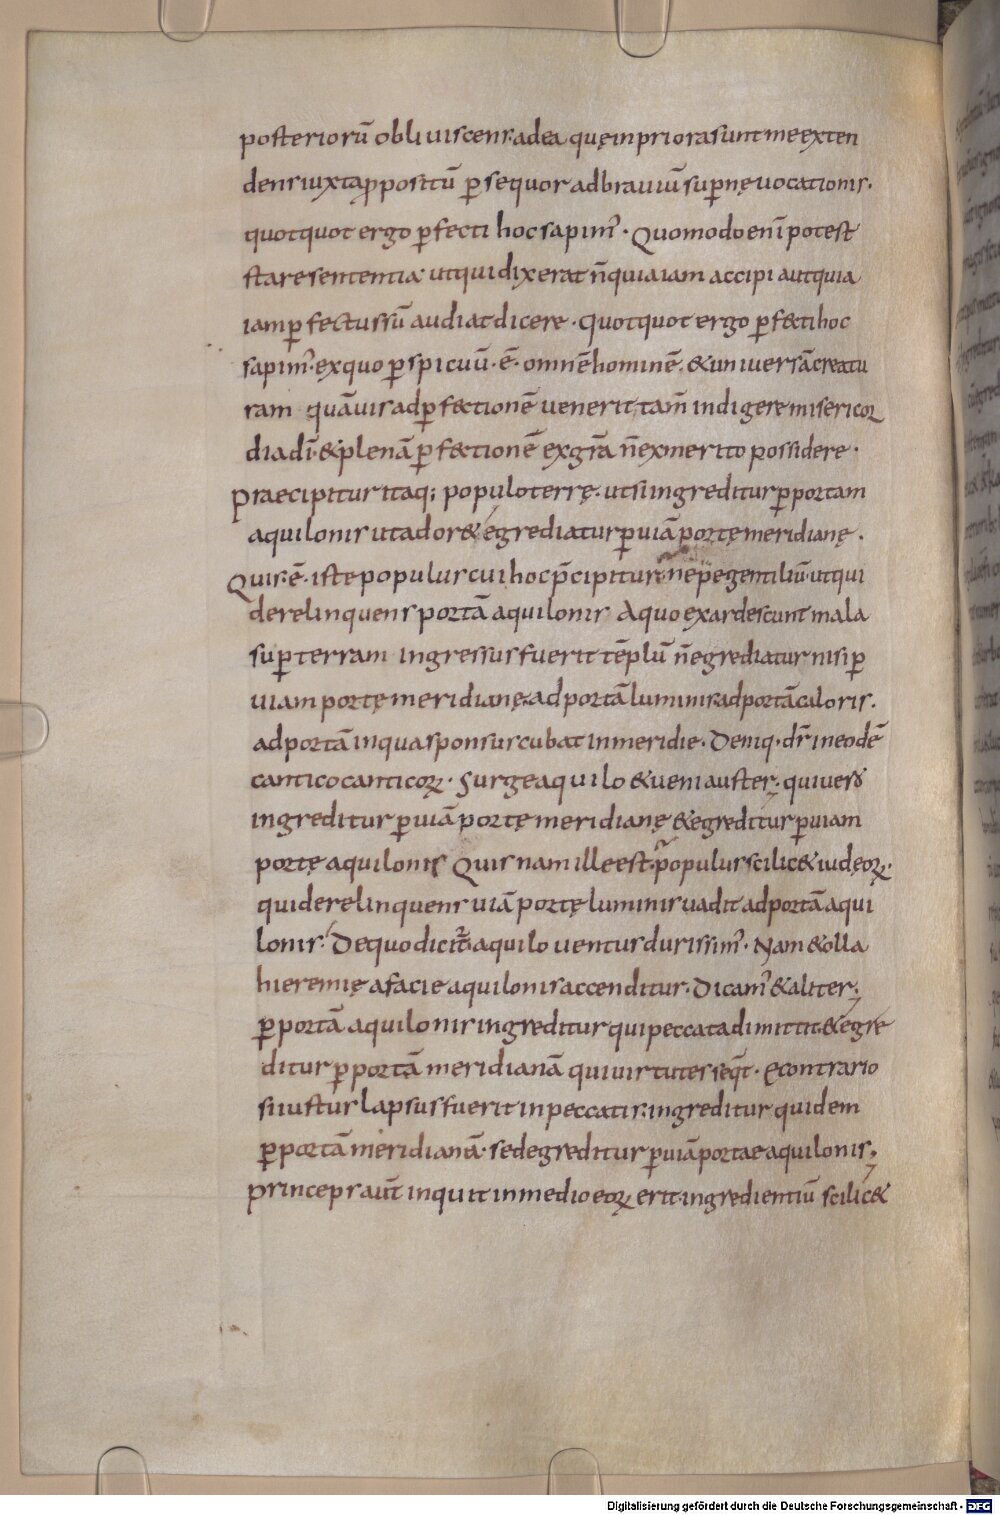 posteriorū obliuiscens adea quę inpriora sunt meexten
dens iuxta ꝓpositū ꝑsequor adbrauiū suꝑnę uocationis.
quotquot ergo ꝑfecti hoc sapim᾽. Quomodo enī potest
stare sententia. ut qui dixerat n̄ quia iam accipi aut quia
iam ꝑfectus sū audiat dicere. Quotquot ergo ꝑf&ti hoc
sapim᾽. exquo ꝑspicuū .ē. omnē hominē. & uniuersā creatu
ram quāuis adꝑf&tionē uenerit. tam̄ indigere misericor
dia dī. & plenā ꝑf&tionē exgr̄a n̄ exmerito possidere.
Praecipitur itaq; populo terrę. ut si ingreditur ꝑ portam
aquilonis ut ador& egrediatur ꝑ uiā portę meridianę.
Quis .ē. iste populus cui hoc p̄cipitur. nēpe gentiliū. ut qui
derelinquens portā aquilonis Aquo exardescunt mala
suꝑ terram ingressus fuerit tēplū n̄ egrediatur nisi ꝑ
uiam portę meridianę. adportā luminis. adportā caloris.
adportā inqua sponsus cubat inmeridie. Deniq. dr̄ ineodē
cantico canticoꝝ. Surge aquilo & ueni auster. qui uers᾽
ingreditur ꝑ uiā portę meridianę & egreditur ꝑ uiam
portę aquilonis Quis nam ille est. populus scilic& iudęoꝝ.
qui derelinquens uiā portę luminis uadit adportā aqui
lonis. Dequo dicit᾽ aquilo uentus durissim᾽. Nam & olla
hieremię afacie aquilonis accenditur. Dicam᾽ & aliter.
ꝑ portā aquilonis ingreditur qui peccata dimittit. & egre
ditur ꝑ portā meridianā qui uirtutes seq̄t. Econtrario
si iustus lapsus fuerit inpeccatis. ingreditur quidem
ꝑ portā meridianā. sed egreditur ꝑ uiā portae aquilonis.
princeps aūt inquit inmedio eoꝝ erit. ingredientiū scilic&
Digitalisierung gefördert durch die Deutsche Forschungsgemeinschaft - DFG